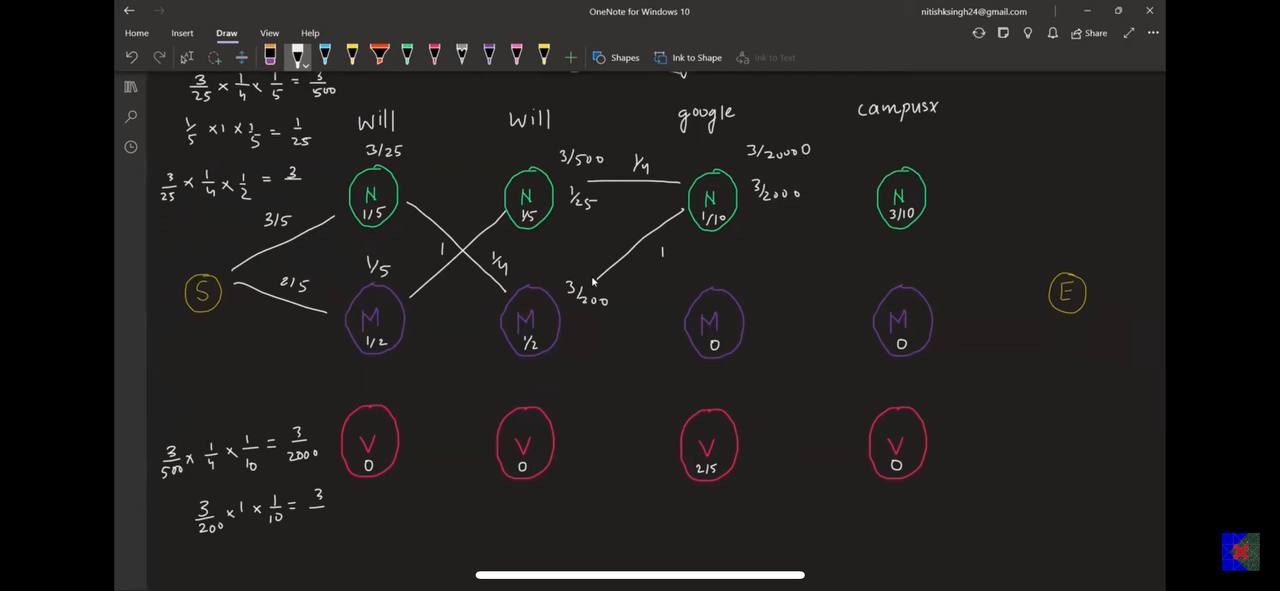 OneNote for Windows 10
nitishksingh24@gmail.com
Home Insert Draw View Help
Share
Shapes Ink to Shape Ink to Text
3/25 x 1/4 x 1/5 = 3/500
1/5 x 1 x 1/5 = 1/25
3/25 x 1/4 x 1/2 = 3
will will google campusx
3/25 3/500 1/4 3/20000
1/25 3/2000
N 1/5
N 1/5
N 1/10
N 3/10
3/5
1/5 1 1/4 1
2/5
3/200
S E
M 1/2
M 1/2
M 0
M 0
V 0
V 0
V 2/5
V 0
3/500 x 1/4 x 1/10 = 3/2000
3/200 x 1 x 1/10 = 3